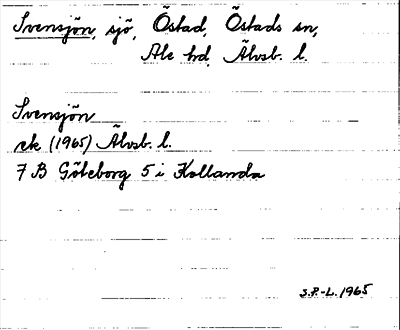 Svensjön, sjö, Östad, Östads sn,
Ale hd, Älvsb. l.
Svensjön
ek (1965) Älvsb. l.
7 B Göteborg 5 i Kollanda
S.P.-L. 1965